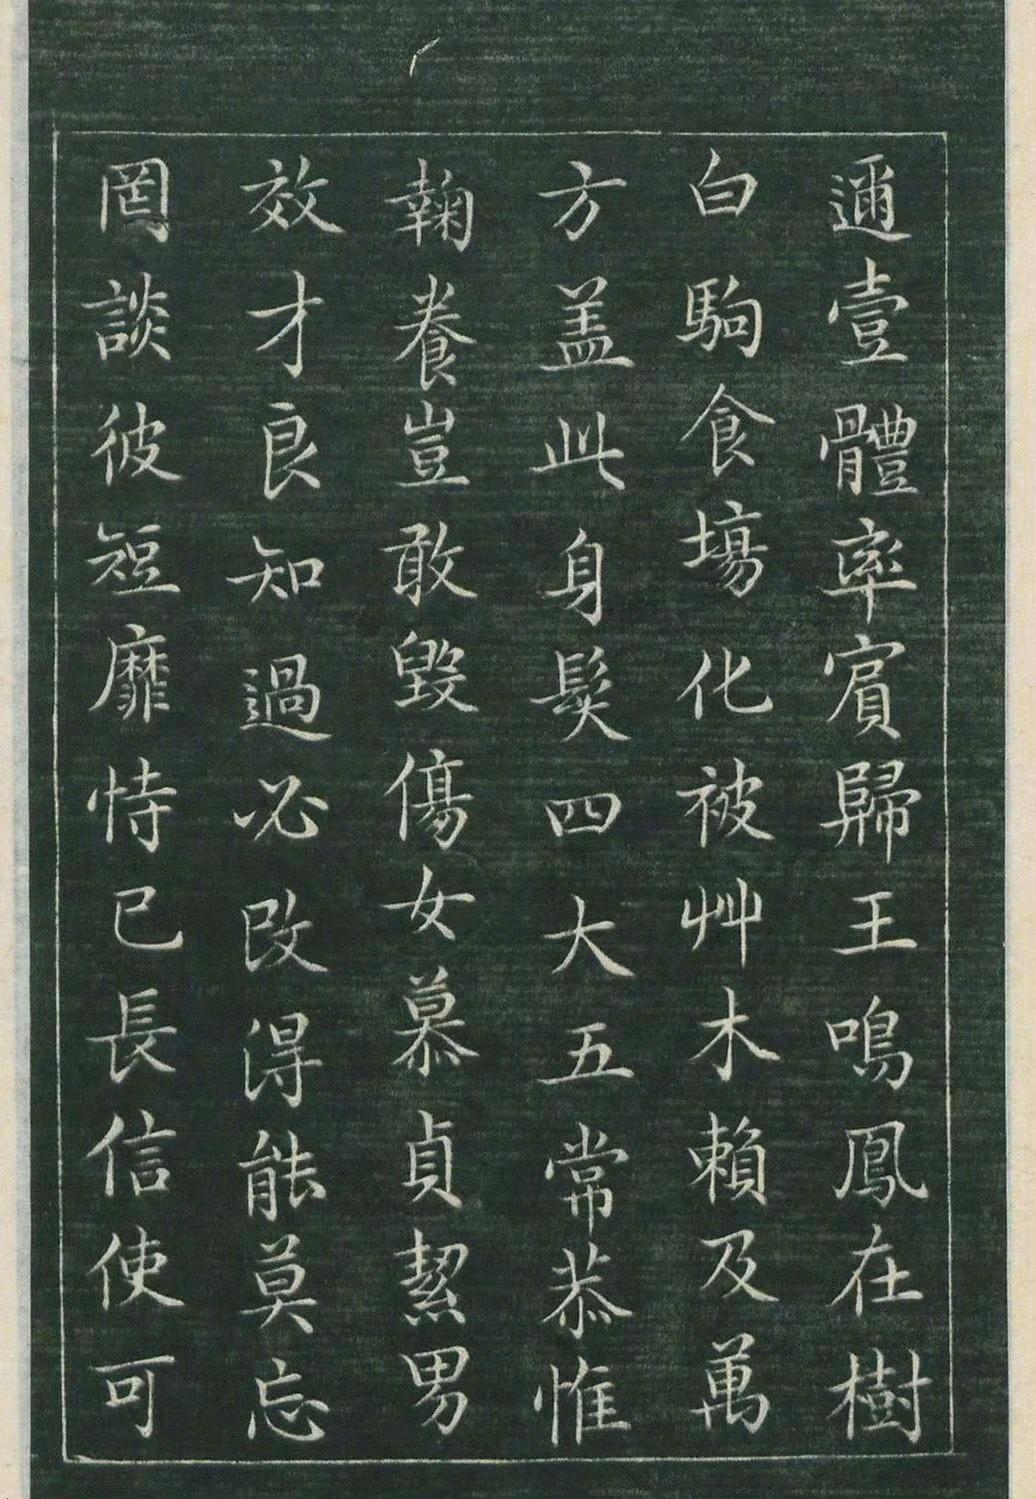 邇壹體率賓歸王鳴鳳在樹
白駒食塲化被艸木賴及萬
方盖此身髮四大五常恭惟
鞠養豈敢毀傷女慕貞絜男
效才良知過必改得能莫忘
罔談彼短靡恃己長信使可